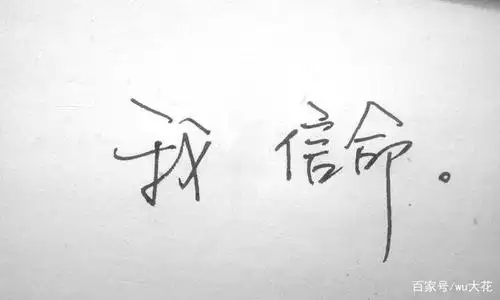 我 信命。
百家号/wu大花